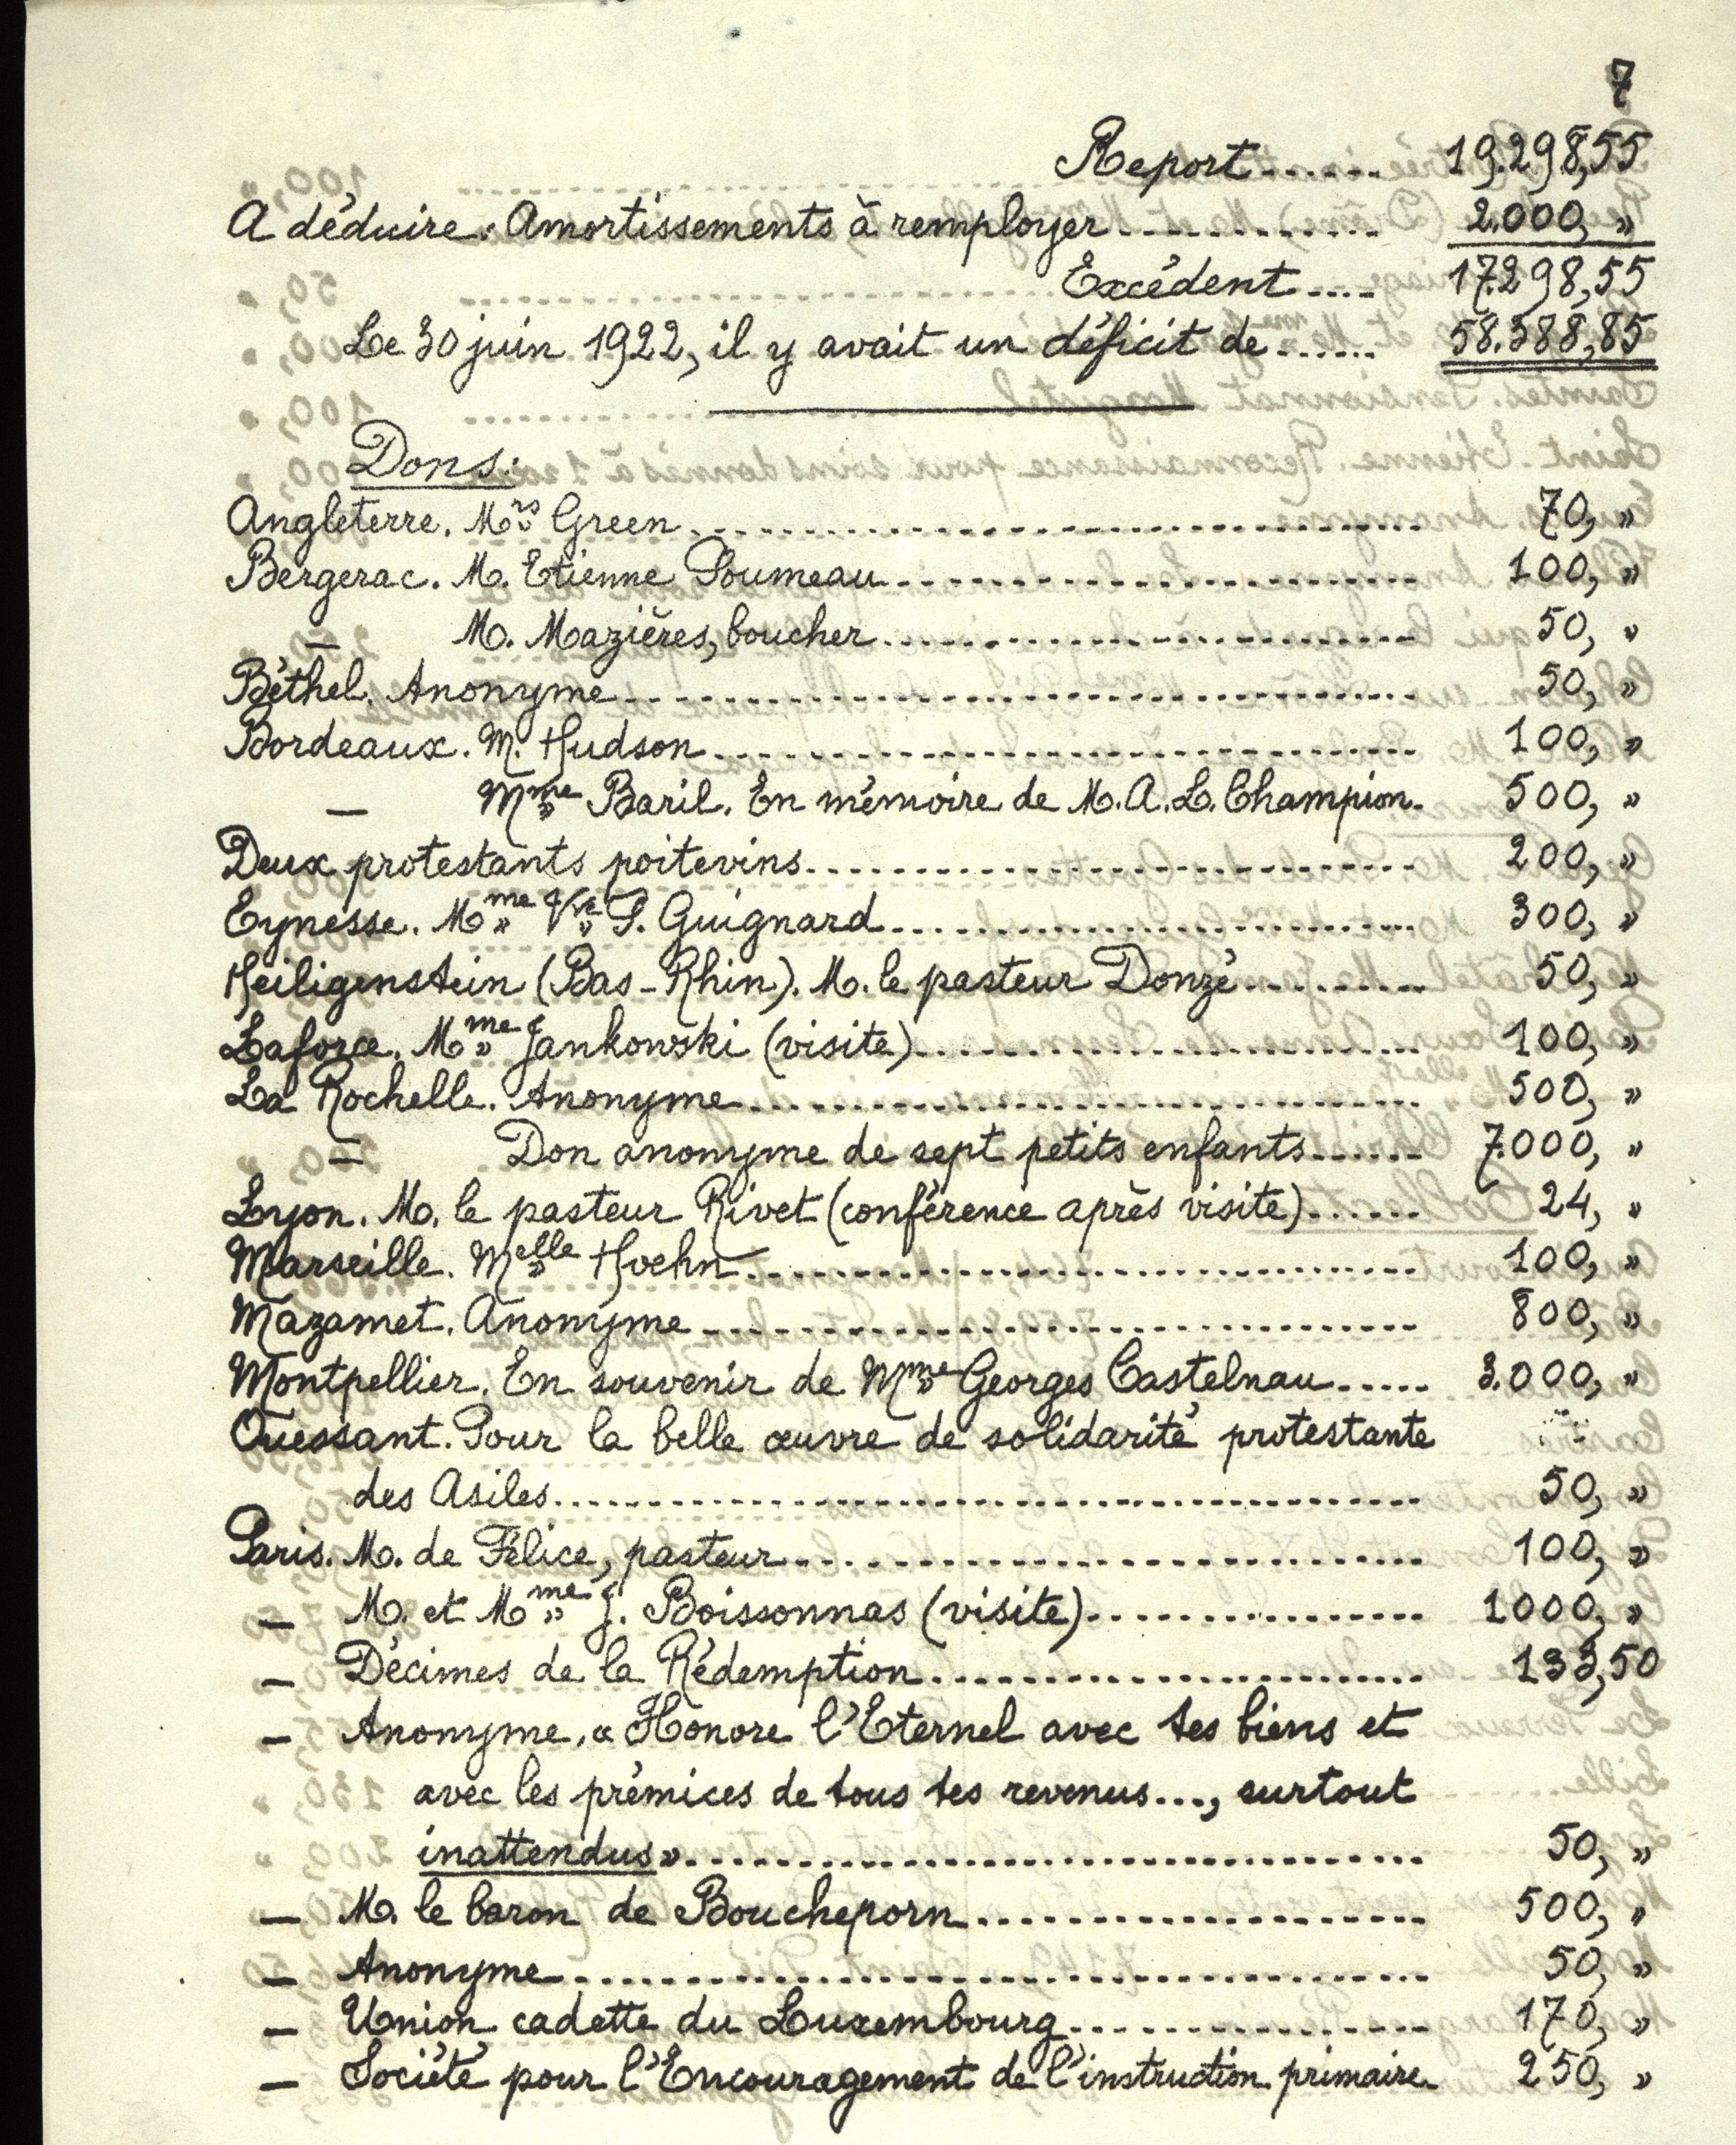 7
Report...... 19.298,55
A déduire: Amortissements à remployer............ 2.000, »
Excédent.... 17.298,55
Le 30 juin 1922, il y avait un déficit de...... 58.388,85
Dons:
Angleterre. Mrs Green........ 70, »
Bergerac. M. Etienne Poumeau........ 100, »
— M. Mazières, boucher........ 50, »
Béthel. Anonyme........ 50, »
Bordeaux. M. Hudson........ 100, »
— Mme Baril. En mémoire de M. A. L. Champion. 500, »
Deux protestants poitevins........ 200, »
Eynesse. Mme Vve P. Guignard........ 300, »
Heiligenstein (Bas-Rhin). M. le pasteur Donzé........ 50, »
Laforce. Mme Jankowski (visite)........ 100, »
La Rochelle. Anonyme........ 500, »
— Don anonyme de sept petits enfants...... 7.000, »
Lyon. M. le pasteur Rivet (conférence après visite)...... 24, »
Marseille. Melle Hoehn........ 100, »
Mazamet. Anonyme........ 800, »
Montpellier. En souvenir de Mme Georges Castelnau..... 3.000, »
Ouessant. Pour la belle œuvre de solidarité protestante
des Asiles........ 50, »
Paris. M. de Félice, pasteur........ 100, »
— M. et Mme J. Boissonnas (visite)........ 1000, »
— Décimes de la Rédemption........ 133,50
— Anonyme. « Honore l'Eternel avec tes biens et
avec les prémices de tous tes revenus..., surtout
inattendus »........ 50, »
— M. le baron de Boucheporn........ 500, »
— Anonyme........ 50, »
— Union cadette du Luxembourg........ 170, »
— Société pour l'Encouragement de l'instruction primaire. 250, »